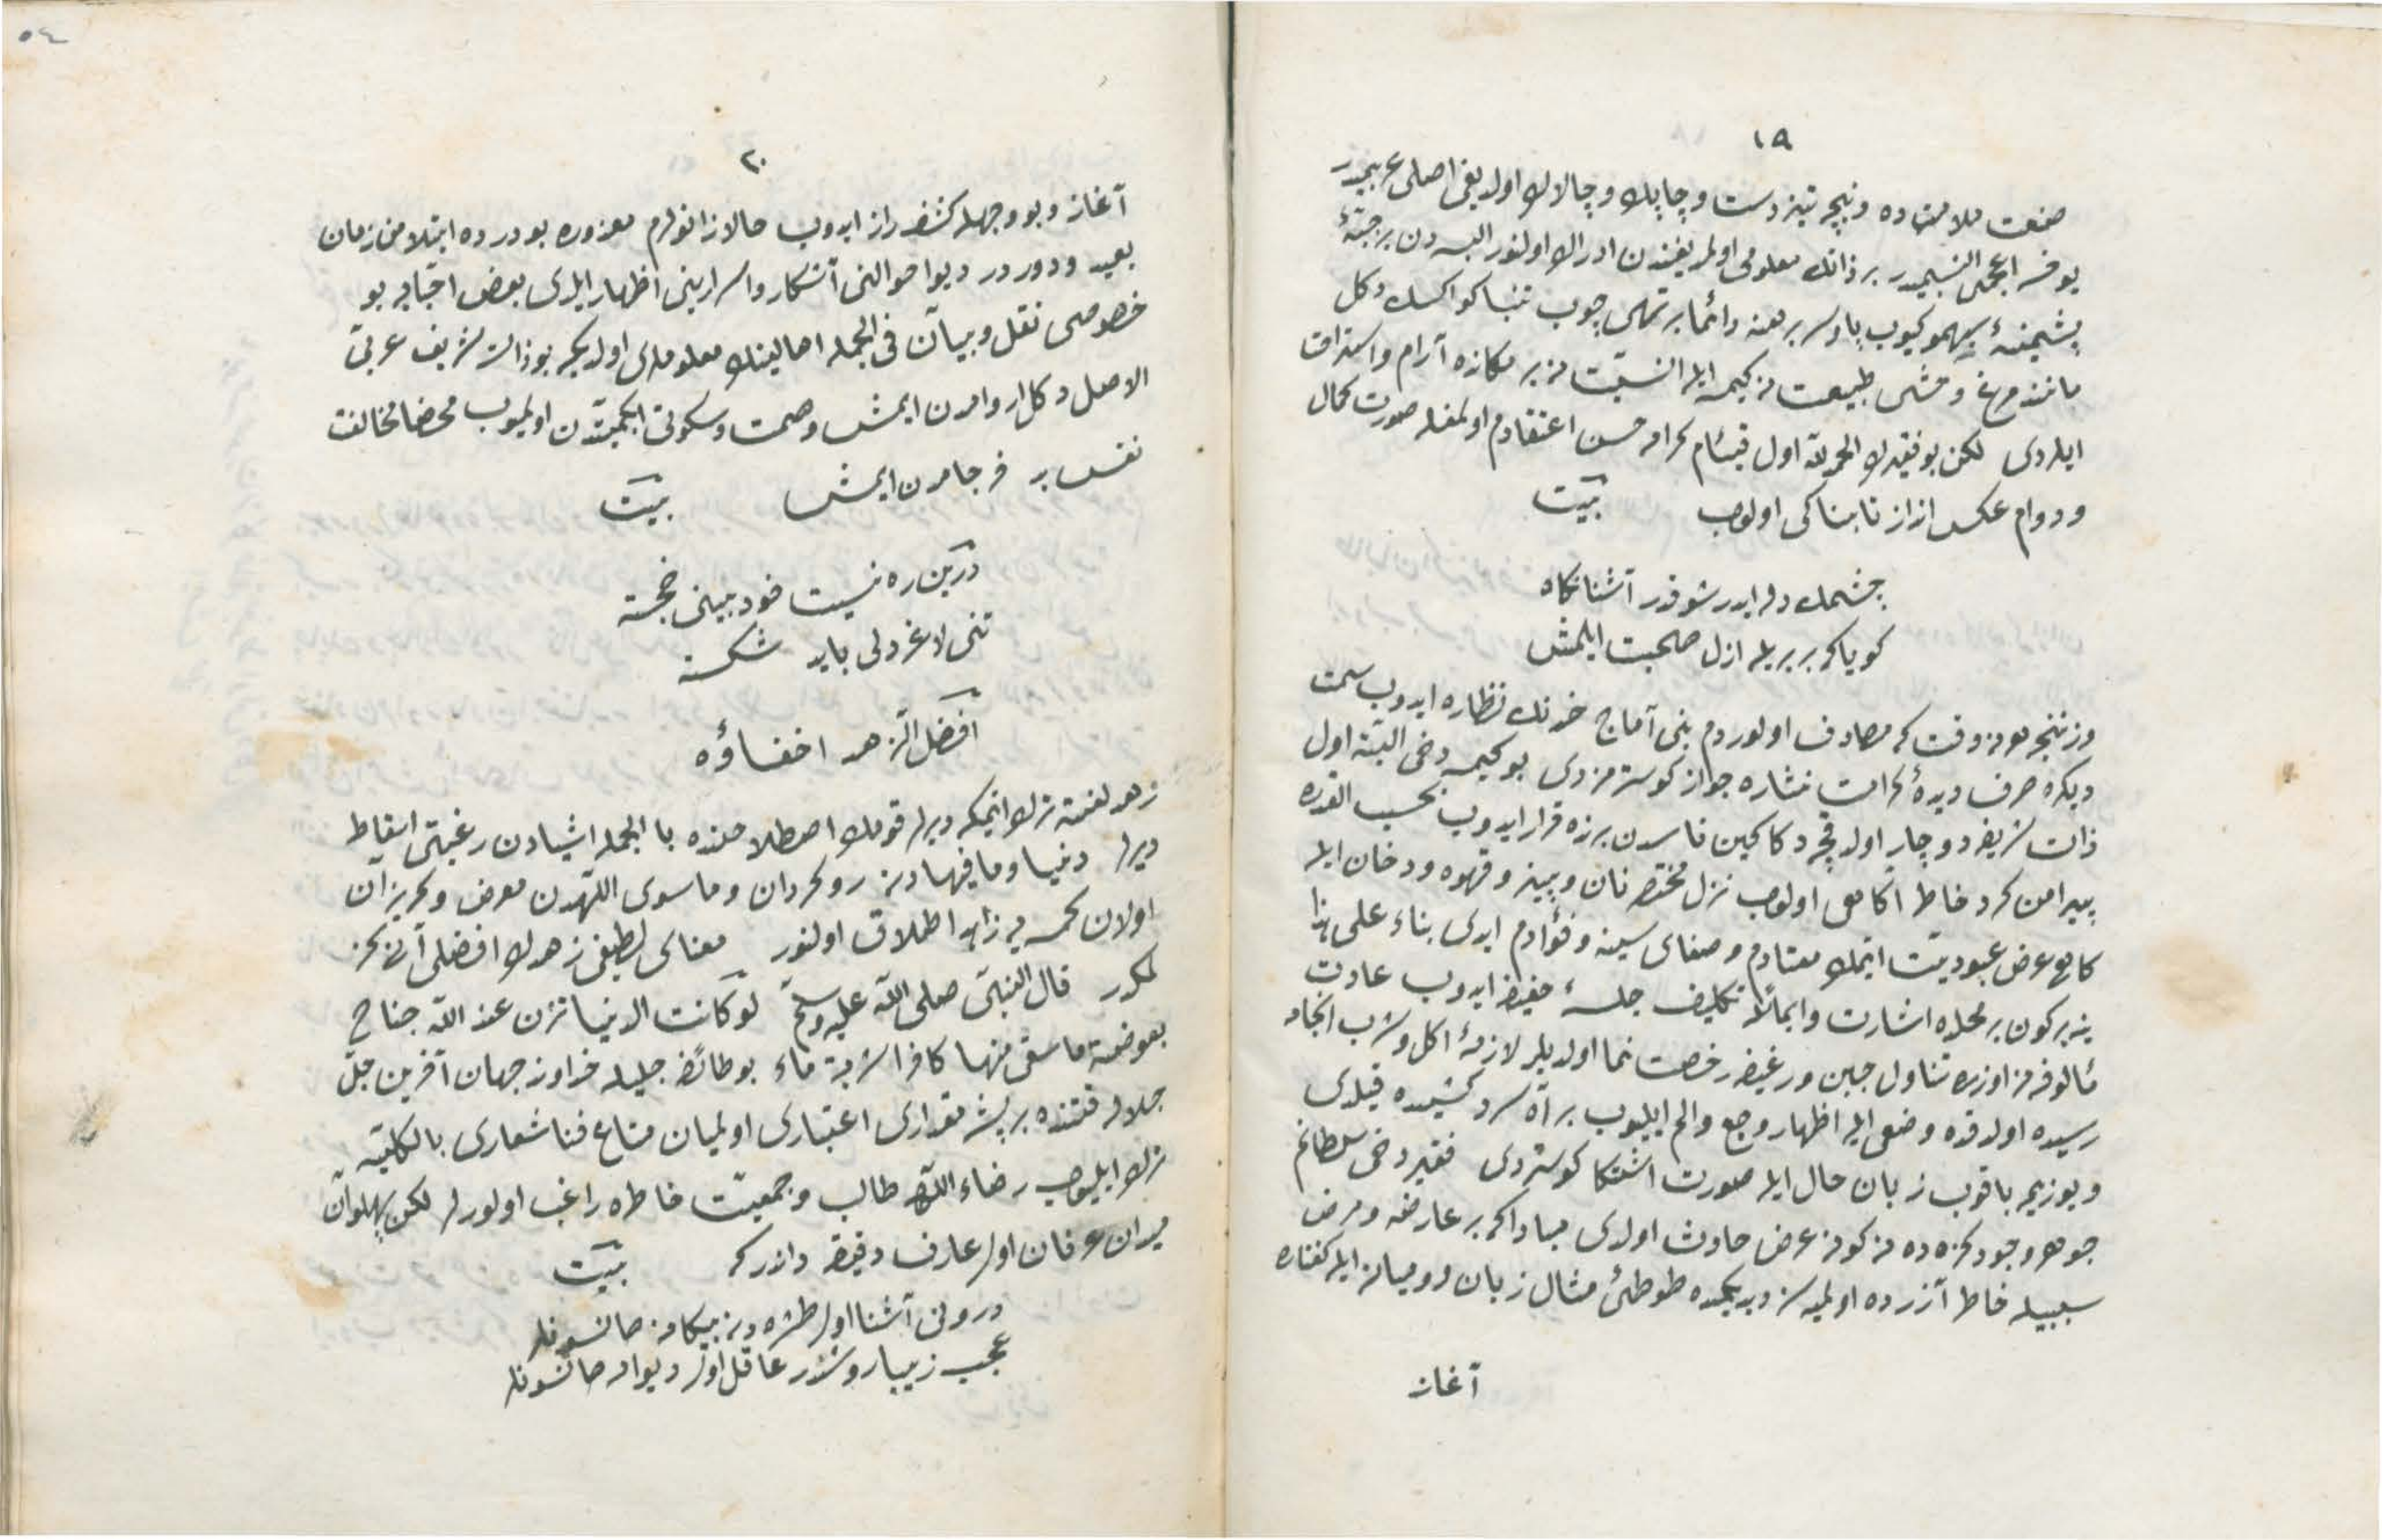 ١٩
صنعت ملامتده و نیجه تیزدست و چاپك و چالاك اولدیغی اصلی عربیدر
یوقسه اعجمی النسبمیدر بر ذاتك معلومی اولمدیغندن ادراك اولنور البسه‌دن بر جبهٔ
پشمینهٔ کیوب پا و سر برهنه دائما بر تهی چوب تنباکو اکسك دکل
مانند مرغ وحشی طبیعت نه کیمسه ایله انسیت نه بر مکانده آرام و استراحت
ایلردی لکن بو فقیرك الحمد لله اول قیسّام کرامه حسن اعتقادم اولمغله صورت کمال
و دوام عکس انداز تابناکی اولوب بیت
چشمك دله ایدر شو قدر آشنا نكاه
کویا که بربریله ازل صحبت ایلمش
هر نه وقت که مصادف اولوردم بنی آماج خدنك نظاره ایدوب سمت
دیکره صرف دیدهٔ کرامت نشاره جواز کوسترمزدی بو کیجه دخی البته اول
ذات شریفه دوچار اولدقجه دکاکین ناسدن برنده قرار ایدوب بحسب القدره
پیرامن کرد خاطر اکامی اولوب نزل مختصر نان و پنیر و قهوه و دخان ایله
کاهی عرض عبودیت ایتمك معتادم و صفای سینه و فؤادم ایدی بناء علی هذا
ینه بر کون بر محلده اشارت و ایماً تکلیف جلسهٔ خفیفه ایدوب عادت
مألوفه‌مز اوزره تناول جبن و رغیفه رخصت نما اولدیلر لازمهٔ اکل و شرب انجامه
رسیده اولدقده وضعی ایله اظهار وجع و الم ایلیوب بر آه سرد کشیده قیلدی
و یوزیمه باقوب زبان حال ایله صورت اشتکا کوستردی فقیر دخی سلطانم
جوهر وجودکزده نه کونه عرض حادث اولدی مبادا که بر عارضه و مرض
سببیله خاطر آزرده اولمیه‌سز دیدیکمده طوطئ مثال زبان رومیانه ایله کفتاره
آغاز
٥٤
٢٠
آغاز و بو وجهله کشف راز ایدوب حالا زانولرم معذوره بو درده ابتلام من زمان
بعید و دوردر دیو احوالنی آشکار و اسرارینی اظهار ایلدی بعض احبابه بو
خصوصی نقل و بیان فی الجمله اهالینك معلوملری اولدیکه بو ذات شریف عربیّ
الاصل دکللر روامدن ایمش و صمت و سکوتی ابکمیتدن اولمیوب محضا مخالفت
نفس بر فرجامدن ایمش بیت
درین ره نیست خود بینی خجسته
تنی لاغر دلی باید شکسته
افضل الزهد اخفاؤه
زهد لغتده ترك ایتمکه دیرلر قومك اصطلاحنده بالجمله اشیادن رغبتی اسقاط
دیرلر دنیا و ما فیهادن روکردان و ماسوی اللهدن معرض و کریزان
اولان کمسه‌یه زاهد اطلاق اولنور معنای لطیفی زهدك افضلی آنی کیز
لمکدر قال النبی صلی الله علیه وسلم لو کانت الدنیا تزن عند الله جناح
بعوضة ما سقی منها کافرا شربة ماء بو طائفهٔ جلیله خداوند جهان آفرین جل
جلاله قتنده بر پشه مقداری اعتباری اولمیان متاع فنا شعاری بالکلیّه
ترك ایلیوب رضاء اللهه طالب و جمعیّت خاطره راغب اولورلر لکن پهلوان
میدان عرفان اولر عارف دقیقه داندر که بیت
درونی آشنا اول طشره‌دن بیکانه صانسونلر
عجب زیبا روشدر عاقل اول دیوانه صانسونلر